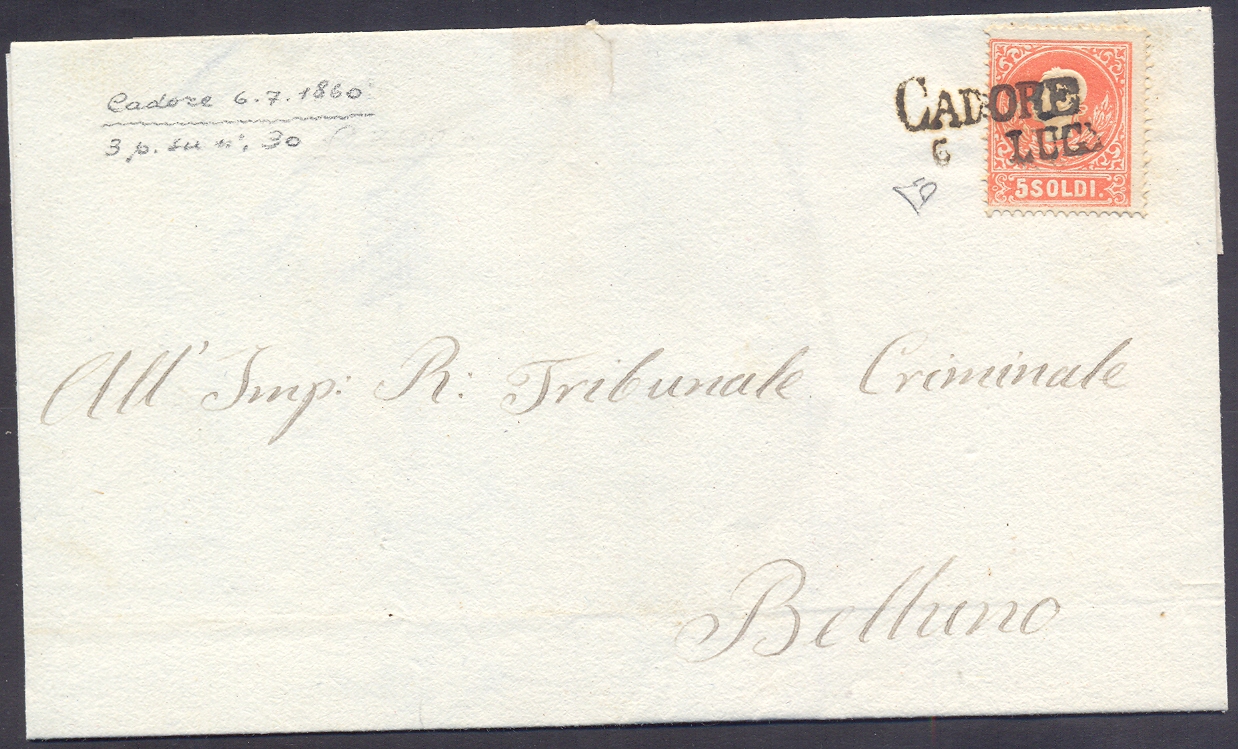 Cadore 6.7.1860
3 p. su n: 30
CADORE
6 LUG
5 SOLDI.
All' Imp: R: Tribunale Criminale
Belluno